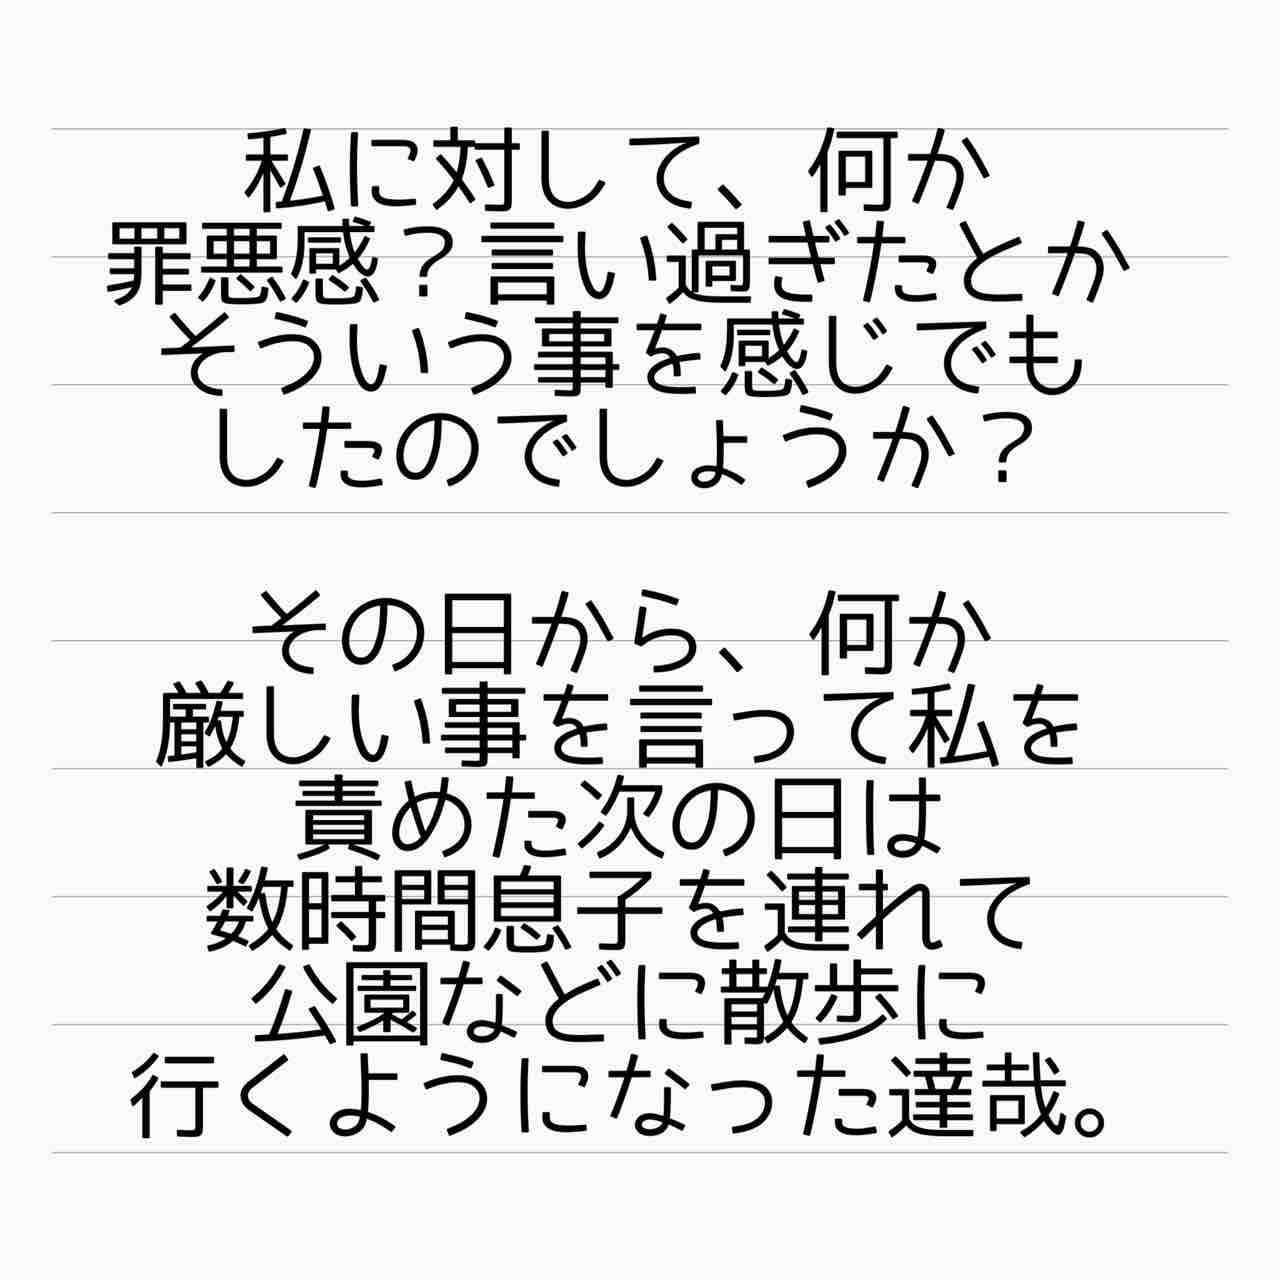 私に対して、何か
罪悪感？言い過ぎたとか
そういう事を感じでも
したのでしょうか？
その日から、何か
厳しい事を言って私を
責めた次の日は
数時間息子を連れて
公園などに散歩に
行くようになった達哉。